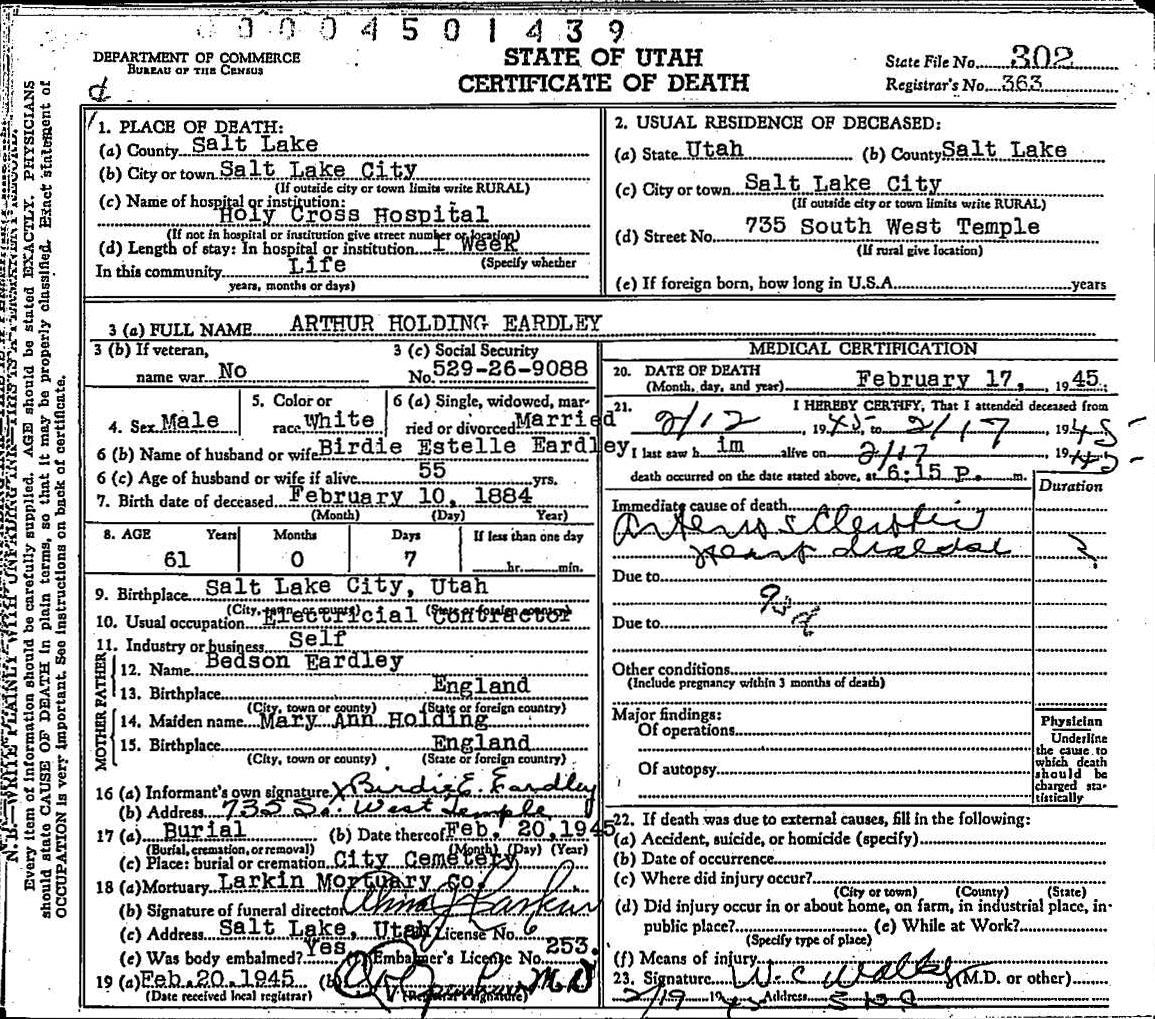 0004501439
DEPARTMENT OF COMMERCE
BUREAU OF THE CENSUS
d
STATE OF UTAH
CERTIFICATE OF DEATH
State File No. 302
Registrar's No. 363
1. PLACE OF DEATH:
(a) County Salt Lake
(b) City or town Salt Lake City
(If outside city or town limits write RURAL)
(c) Name of hospital or institution:
Holy Cross Hospital
(If not in hospital or institution give street number or location)
(d) Length of stay: In hospital or institution 1 Week
(Specify whether
In this community Life
years, months or days)
2. USUAL RESIDENCE OF DECEASED:
(a) State Utah (b) County Salt Lake
(c) City or town Salt Lake City
(If outside city or town limits write RURAL)
(d) Street No. 735 South West Temple
(If rural give location)
(e) If foreign born, how long in U.S.A. years
3 (a) FULL NAME ARTHUR HOLDING EARDLEY
3 (b) If veteran,
name war No
3 (c) Social Security
No. 529-26-9088
4. Sex Male
5. Color or
race White
6 (a) Single, widowed, mar-
ried or divorced Married
6 (b) Name of husband or wife Birdie Estelle Eardley
6 (c) Age of husband or wife if alive 55 yrs.
7. Birth date of deceased February 10, 1884
(Month) (Day) Year)
8. AGE Years Months Days If less than one day
61 0 7 hr. min.
9. Birthplace Salt Lake City, Utah
(City, town or county) (State or foreign country)
10. Usual occupation Electricial Contractor
11. Industry or business Self
FATHER
12. Name Bedson Eardley
13. Birthplace England
(City, town or county) (State or foreign country)
MOTHER
14. Maiden name Mary Ann Holding
15. Birthplace England
(City, town or county) (State or foreign country)
16 (a) Informant's own signature x Birdie E. Eardley
(b) Address 735 S. West Temple
17 (a) Burial (b) Date thereof Feb. 20, 1945
(Burial, cremation, or removal) (Month) (Day) (Year)
(c) Place: burial or cremation City Cemetery
18 (a) Mortuary Larkin Mortuary Co.
(b) Signature of funeral director Alma J Larkin
(c) Address Salt Lake, Utah License No. 6
(e) Was body embalmed? Yes (f) Embalmer's License No. 253.
19 (a) Feb. 20, 1945 (b) M.D
(Date received local registrar) (Registrar's signature)
MEDICAL CERTIFICATION
20. DATE OF DEATH
(Month, day, and year) February 17, 1945;
21. I HEREBY CERTIFY, That I attended deceased from
2/12, 1945, to 2/17, 1945
I last saw h im alive on 2/17, 1945
death occurred on the date stated above, at 6:15 P. m.
Duration
Immediate cause of death
Arteriosclerotic
heart disease ?
Due to
Due to
Other conditions
(Include pregnancy within 3 months of death)
Major findings:
Of operations
Of autopsy
Physician
Underline
the cause to
which death
should be
charged sta-
tistically
22. If death was due to external causes, fill in the following:
(a) Accident, suicide, or homicide (specify)
(b) Date of occurrence
(c) Where did injury occur?
(City or town) (County) (State)
(d) Did injury occur in or about home, on farm, in industrial place, in-
public place? (e) While at Work?
(Specify type of place)
(f) Means of injury
23. Signature W. C Walker (M.D. or other)
2/19 1945 Address
N. B.—WRITE PLAINLY WITH UNFADING INK—THIS IS A PERMANENT RECORD.
Every item of information should be carefully supplied. AGE should be stated EXACTLY. PHYSICIANS
should state CAUSE OF DEATH in plain terms, so that it may be properly classified. Exact statement of
OCCUPATION is very important. See instructions on back of certificate.